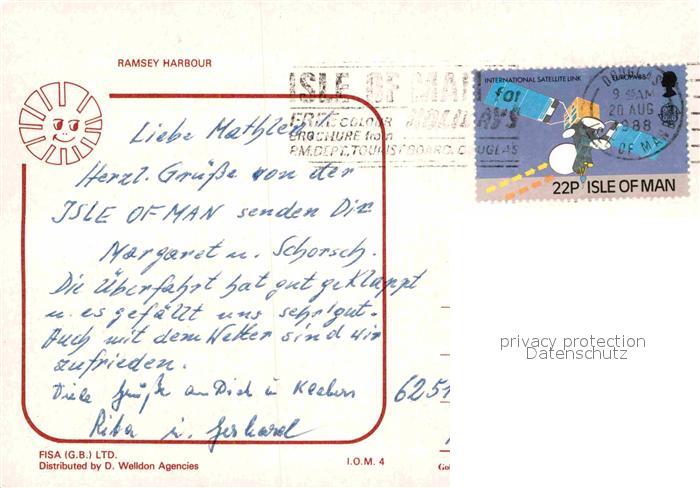 RAMSEY HARBOUR
ISLE OF MAN
for
FREE COLOUR HOLIDAYS
BROCHURE from
P.M.DEPT, TOURIST BOARD, DOUGLAS
INTERNATIONAL SATELLITE LINK EUROPA 88
DOUGLAS
9 15AM
20 AUG
1988
OF MAN
22P ISLE OF MAN
Liebe
Herzl. Grüße von der
ISLE OF MAN senden Dir
Margaret u. Schorsch.
Die Überfahrt hat gut geklappt
u. es gefällt uns sehr gut.
Auch mit dem Wetter sind wir
zufrieden.
Viele Grüße an Dich u
6251
Rita u. Gerhard
privacy protection
Datenschutz
FISA (G.B.) LTD.
Distributed by D. Welldon Agencies
I.O.M. 4